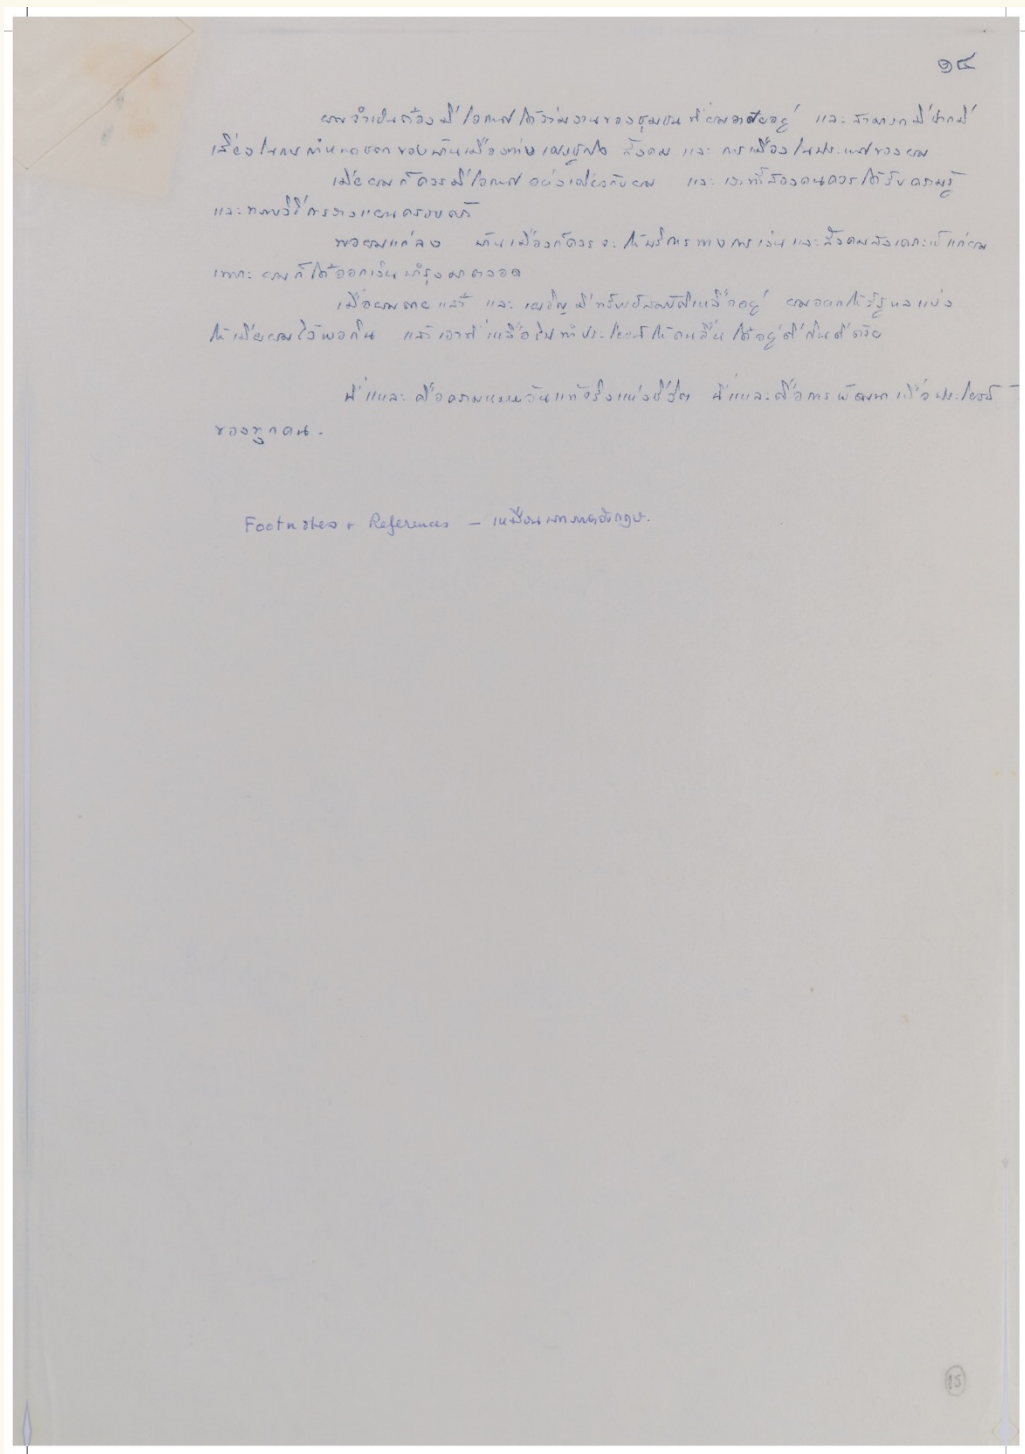 ๑๔
ผมจำเป็นต้องมีโอกาสได้ร่วมงานของชุมชนที่ผมอาศัยอยู่ และสามารถมีปากมี
เสียงในการกำหนดชะตาของบ้านเมืองทางเศรษฐกิจ สังคม และ การเมืองในประเทศของผม
เมียผมก็ควรมีโอกาสอย่างเดียวกับผม และเราทั้งสองคนควรได้รับความรู้
และทราบวิธีการวางแผนครอบครัว
พอผมแก่ลง บ้านเมืองก็ควรจะให้บริการทางการเงินและสังคมสงเคราะห์แก่ผม
เพราะผมก็ได้ออกเงินบำรุงมาตลอด
เมื่อผมตายแล้ว และเผอิญมีทรัพย์สมบัติเหลืออยู่ ผมอยากให้รัฐบาลแบ่ง
ให้เมียผมไว้พอกิน แล้วเอาที่เหลือไปทำประโยชน์ให้คนอื่นได้อยู่ดีกินดีด้วย
นี่แหละคือความหมายอันแท้จริงแห่งชีวิต นี่แหละคือการพัฒนาเพื่อประโยชน์
ของทุกคน.
Footnotes + References – เหมือนบทภาษาอังกฤษ.
15